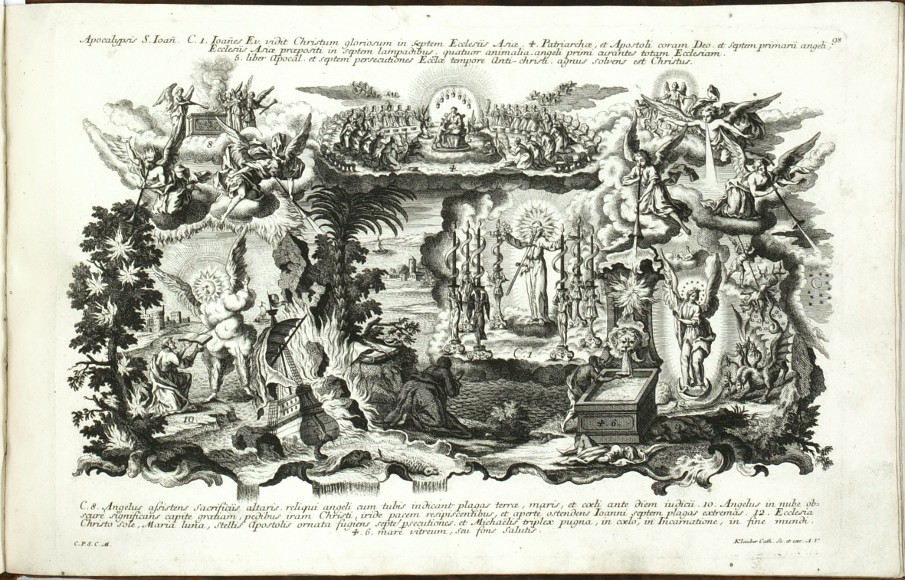 Apocalypsis S. Ioañ. C. 1. Ioañes Ev. vidit Christum gloriosum in Septem Ecclesiis Asiæ, 4. Patriarchæ, et Apostoli coram Deo. et septem primarii angeli
98
Ecclesiis Asiæ præpositi in septem lampadibus, quatuor animalia. angeli primi curantes totam Ecclesiam.
5. liber Apocal. et septem persecutiones Eccłæ tempore Anti-christi. agnus solvens est Christus.
8
4
C. 1
10.
4. 6.
C. 8. Angelus assistens sacrificiis altaris. reliqui angeli cum tubis indicant plagas terræ, maris, et cœli ante diem iudicii. 10. Angelus in nube ob-
scure significans capite gratiam, pedibus iram Christi, iride pacem resipiscentibus, et aperte ostendens Ioanni septem plagas extremas. 12. Ecclesia
Christo sole, Maria luna, Stellis Apostolis ornata fugiens septē psecutiones. et Michaelis triplex pugna, in cœlo, in Incarnatione, in fine mundi.
4. 6. mare vitreum, seu fons Salutis.
C. P. S. C. M.
Klauber Cath. Sc. et exc. A. V.